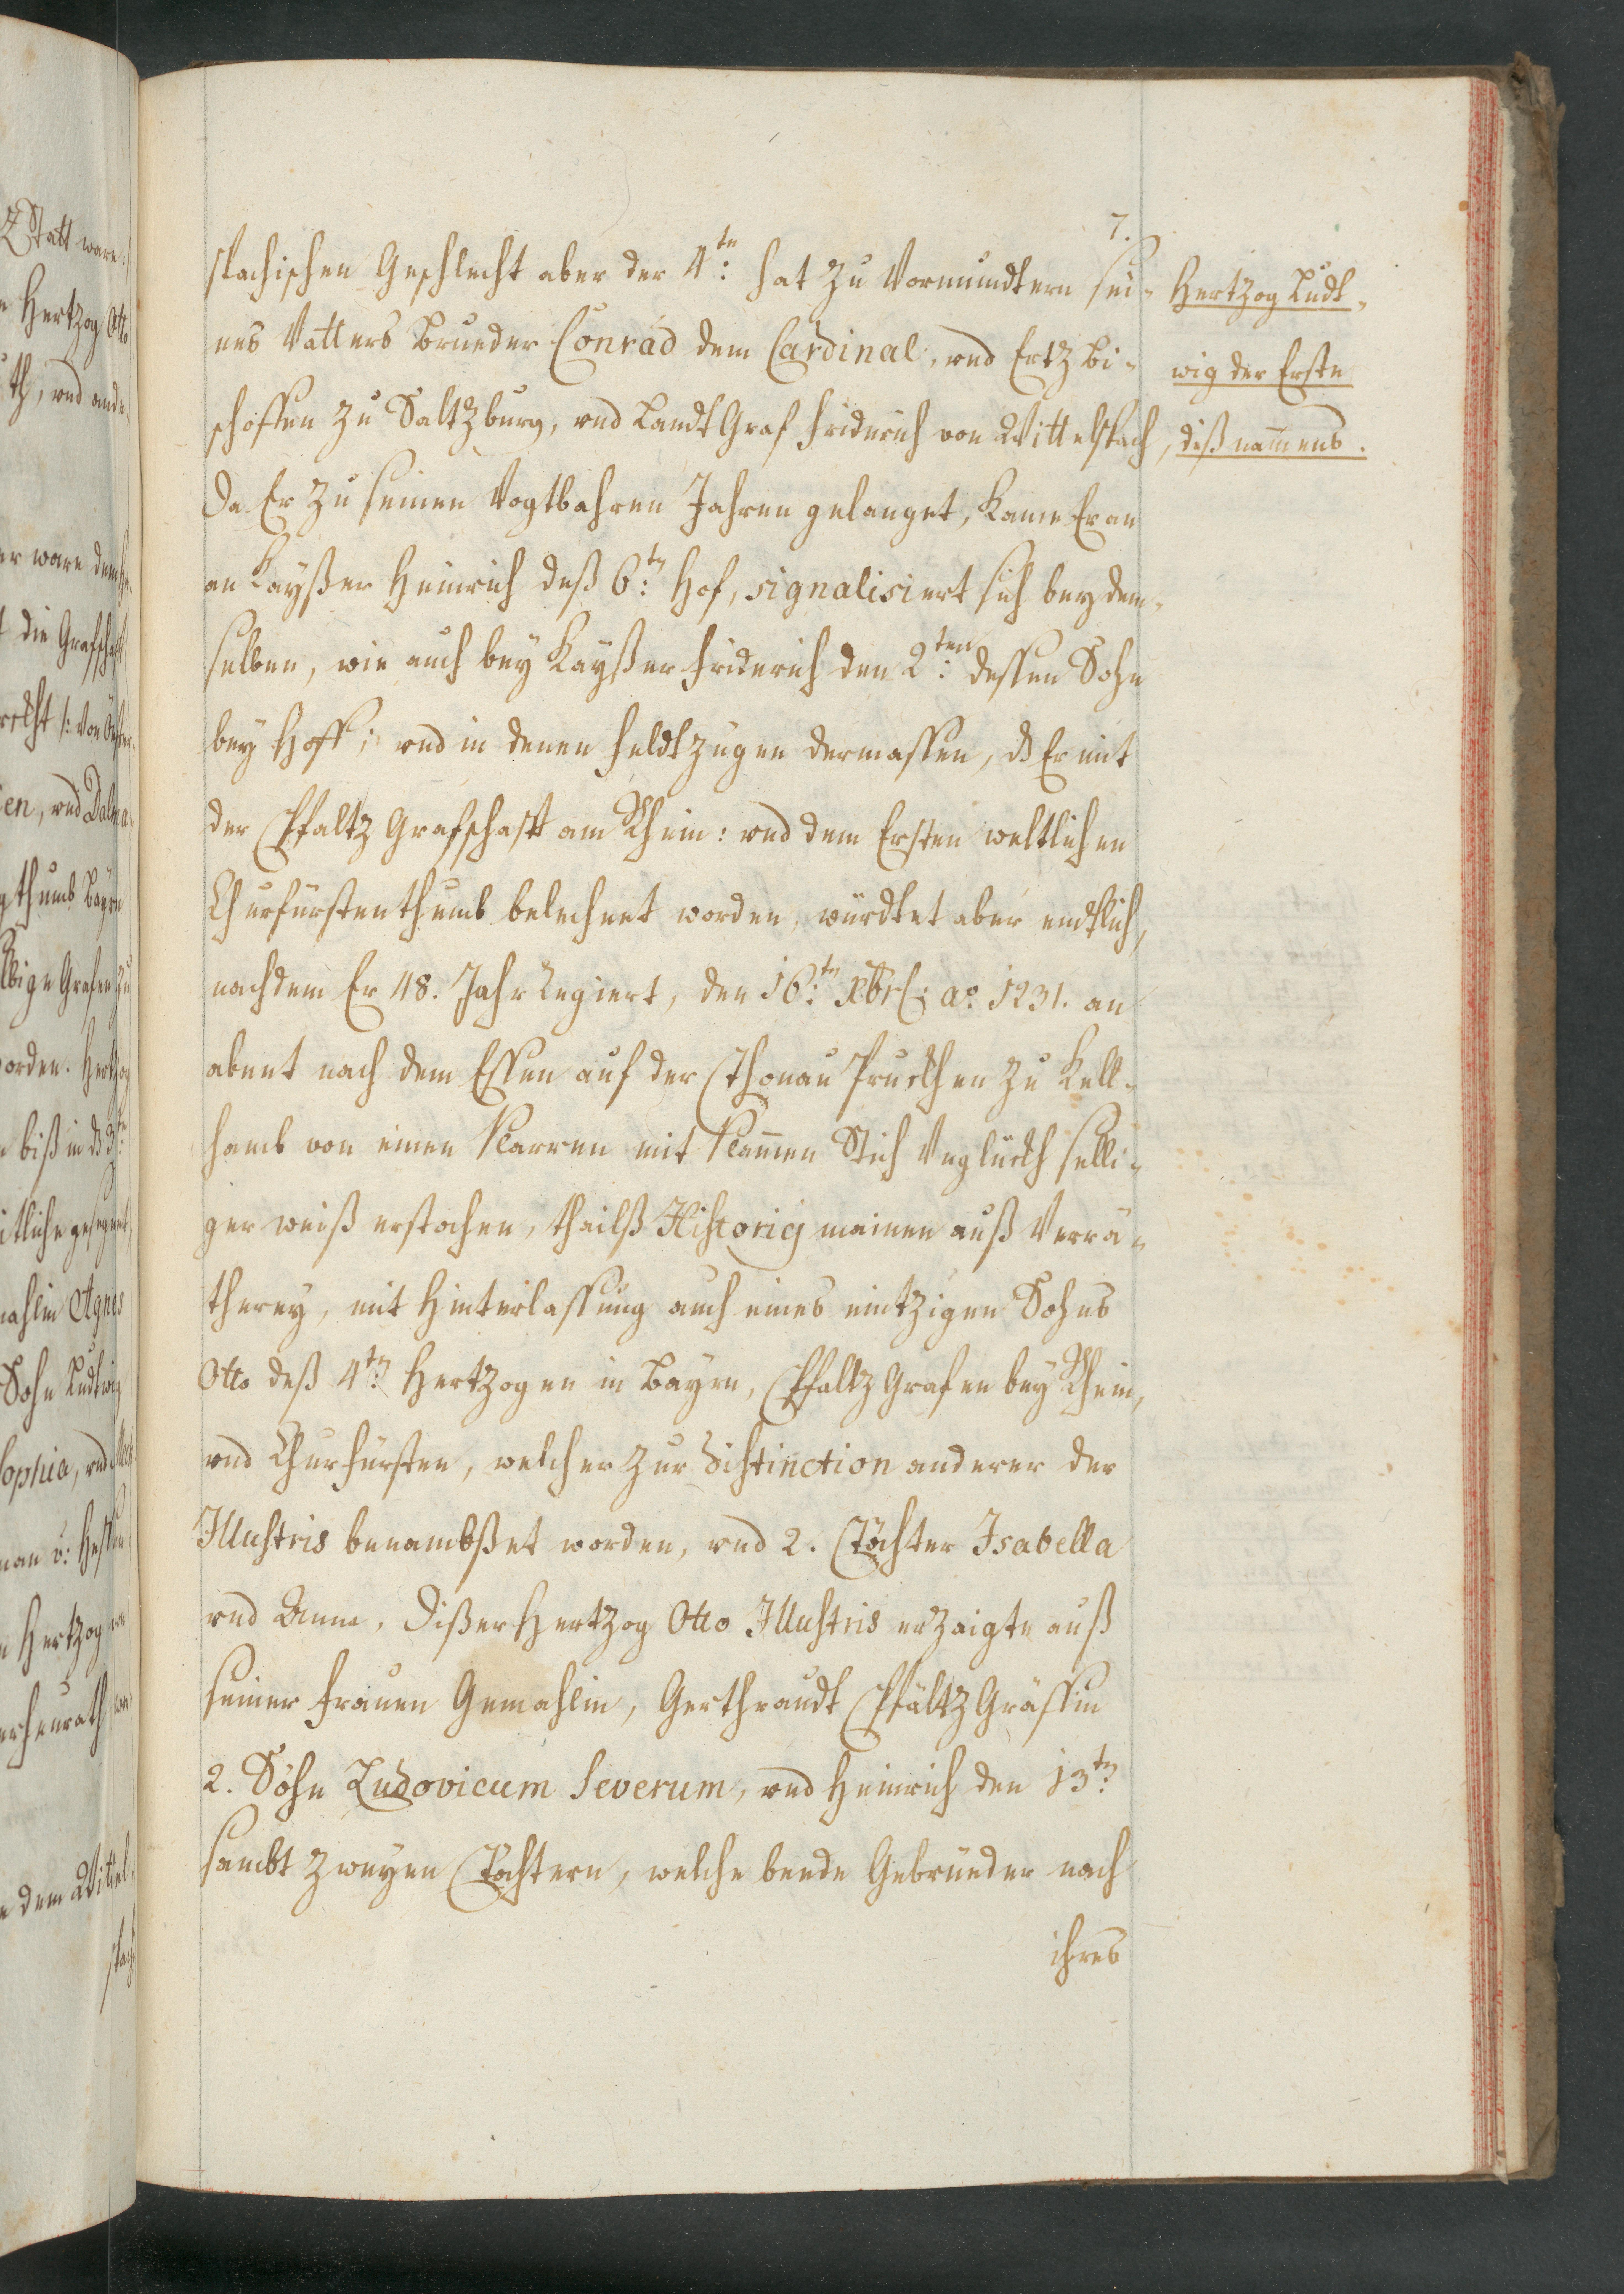 7.
spachischen Geschlecht aber der 4te: hat zu Vormundtern sei-
nes Vatters Brueder Conrad dem Cardinal, und Ertzbi-
schoffen zu Saltzburg, und LandtGraf Friderich von Wittelspach,
Da Er zu seinen Vogtbahren Jahren gelanget, Kame Er an
an Kayßer Heinrich deß 6tn: Hof, signalisiert sich bey dem-
selben, wie auch bey Kayßer Friderich den 2ten: dessen Sohn
bey Hoff; und in denen Feldtzügen dermassen, ds Er mit
der Pfaltz Grafschafft am Rhein: und dem Ersten weltlichen
Churfürstenthumb belechnet worden, würdtet aber endtlich,
nachdem Er 48. Jahr Regiert, den 16tn: Xbris: ao. 1231. an
abent nach dem Essen auf der Thonau Pruckhen zu Kell-
hamb von einen Narren mit Namen Stich Unglückh selli-
ger weiß erstochen, thailß Historicj mainen auß Verrä-
therey, mit Hinterlassung auch eines eintzigen Sohns
Otto deß 4tn: Hertzogen in Bayrn, Pfaltz Grafen bey Rhein,
und Churfürsten, welcher zur Distinction anderer der
Illustris benambßet worden, und 2. Töchter Isabella
und Anna, Dißer Hertzog Otto Illustris erzaigte auß
seiner Frauen Gemahlin, Gerthraudt PfältzGräffin
2. Söhn Ludovicum Severum, und Heinrich den 13tn:
sambt zweyen Töchtern, welche beede Gebrüeder nach
ihres
Hertzog Ludt-
wig der Erste
diß nammens.